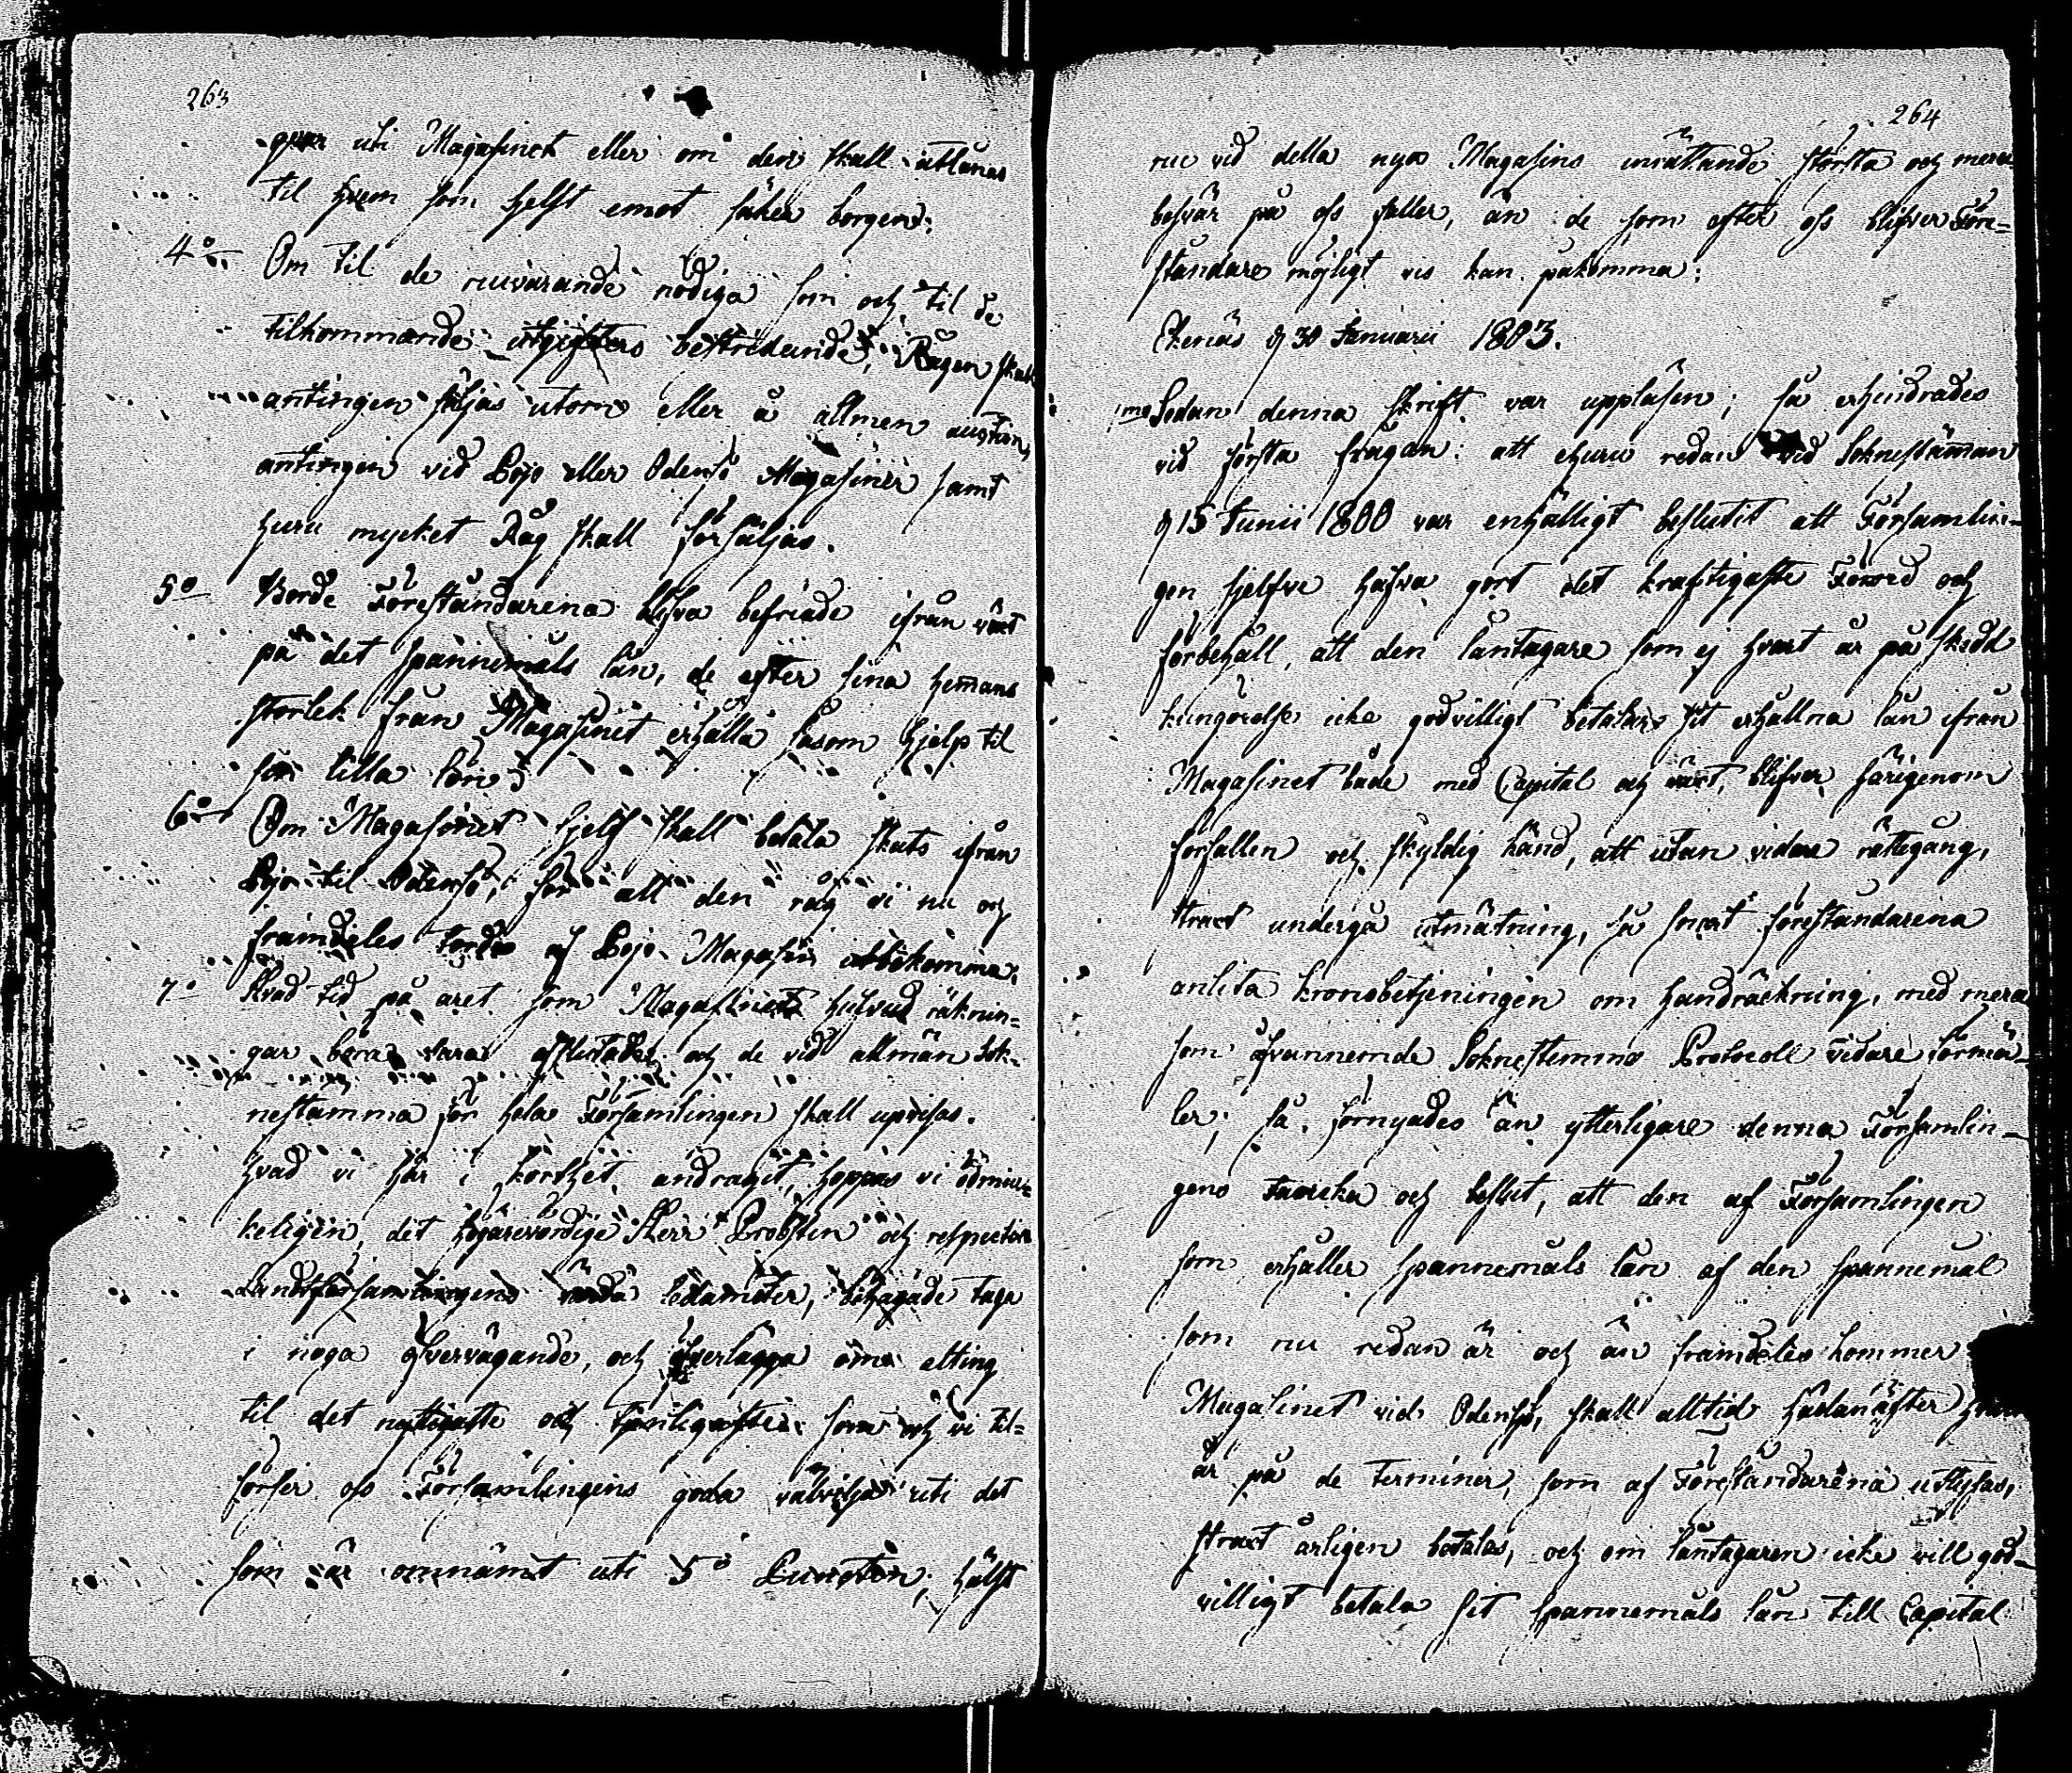 263
qvar uti Magasinet eller om den skall utlånas
til hvem som helst emot säker borgen.
4o Om til de nuvarande nödiga som och til de
tilkommande utgifters bestridande, Rågen skall
antingen säljas utom eller å allmen auction,
antingen vid Bojo eller Odensö Magasiner samt
huru mycket Råg skall försäljas.
5o Borde Föreståndarena blifva befriade ifrån växt
på det spannemåls lån, de efter sina hemans
storlek från Magasinet erhålla såsom hjelp til
sin lilla lön;
6o Om Magasinet sjelf skall betala skuts ifrån
Bojo til Odensö, för att den råg vi nu och
framdeles af Bojo Magasin utbekomma;
7o Hvad tid på året som Magasinets hufvud räknin=
gar böra vara afslutade och de vid allmän Sok=
nestämma för hela Församlingen skall upvisas.
Hvad vi här i korthet andragit, hoppas vi ödmiu=
keligen, det högärevördige Herr Probsten och respective
Landtförsamlingens Ledamöter, behagade taga
i noga öfvervägande, och öfverlägga om alting
til det nyttigaste och som och vi til=
förser oss Församlingens goda välvilja uti det
som är omnämt uti 5o Puncten, hälst
264
nu vid detta nya Magasins inrättande största och mera
besvär på oss faller, än de som efter oss blifver Före=
ståndare möjligt vis kan påkomma;
Ekenäs d 30 Januarii 1803.
1mo Sedan denna skrift var uppläsen; så erhindrades
vid första frågan: att ehuru redan vid Soknestämman
d 15 Junii 1800 var enhälligt beslutit att Församlin=
gen sjelfve hafva gort det kraftigaste Förord och
förbehåll, att den låntagare som ej hvart år på skedd
kungörelse icke godvilligt betalar sit erhållna lån ifrån
Magasinet både med Capital och växt, blifver härigenom
förfallen och skyldig känd, att utan vidare rättegång,
straxt undergå utmätning, så snart föreståndarena
anlita kronobetjeningen om handräckning, med mera
som ofvannemde Soknestemmo Protocoll vidare förmä=
ler; så förnyades än ytterligare denna Församlin=
gens Önskan och beslut, att den af Församlingen
som erhåller spannemåls lån af den spannemål
som nu redan är och än framdeles kommer
Magasinet vid Odensö, skall alltid hädanäfter hvart
år på de Terminer, som af Föreståndarena utlysas,
straxt årligen betalas, och om låntagaren icke vill god=
villigt betala sit spannemåls lån till Capital